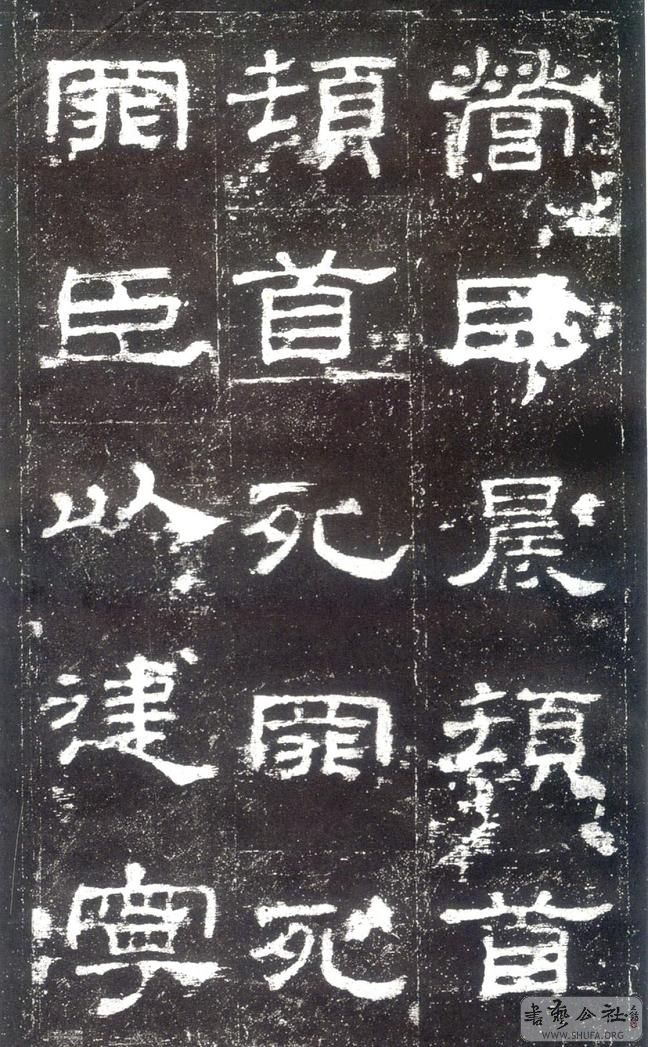 書臣晨頓首
頓首死罪死
罪臣以建寧
書藝公社
WWW.SHUFA.ORG